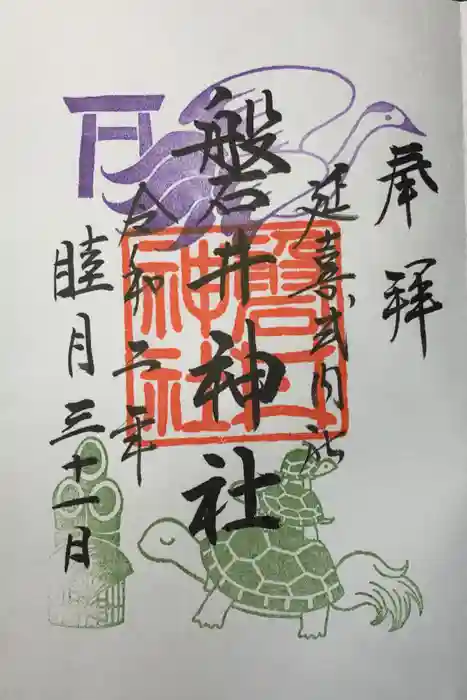 奉拝
延喜式内社
磐井神社
磐井神社
令和二年
睦月三十一日